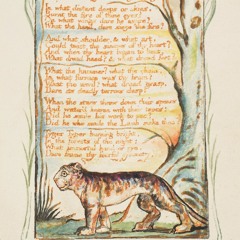 In what distant deeps or skies,
Burnt the fire of thine eyes?
On what wings dare he aspire?
What the hand, dare sieze the fire?
And what shoulder, & what art,
Could twist the sinews of thy heart?
And when thy heart began to beat,
What dread hand? & what dread feet?
What the hammer? what the chain,
In what furnace was thy brain?
What the anvil? what dread grasp,
Dare its deadly terrors clasp?
When the stars threw down their spears
And water'd heaven with their tears:
Did he smile his work to see?
Did he who made the Lamb make thee?
Tyger Tyger burning bright,
In the forests of the night:
What immortal hand or eye,
Dare frame thy fearful symmetry?